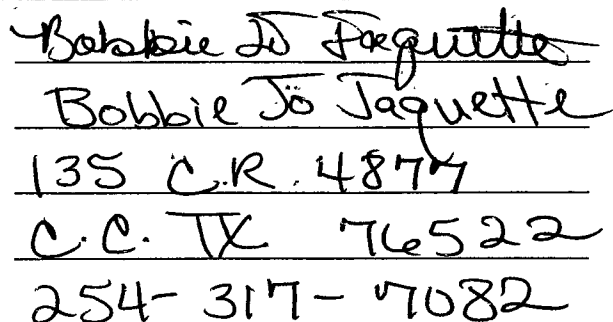 Bobbie Jo Jaquette
Bobbie Jo Jaquette
135 C.R. 4877
C.C. TX 76522
254-317-7082